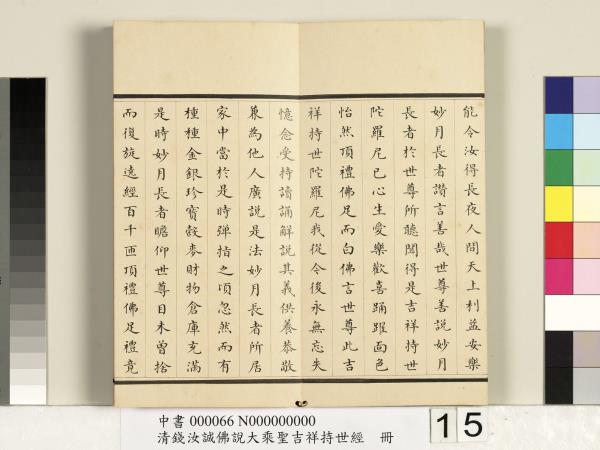 能令汝得長夜人間天上利益安樂
妙月長者讚言善哉世尊善說妙月
長者於世尊所聽聞得是吉祥持世
陀羅尼已心生愛樂歡喜踊躍面色
怡然頂禮佛足而白佛言世尊此吉
祥持世陀羅尼我從今後永無忘失
憶念受持讀誦解說其義供養恭敬
兼為他人廣說是法妙月長者所居
家中當於是時彈指之頃忽然而有
種種金銀珍寶榖麥財物倉庫充滿
是時妙月長者瞻仰世尊目未曾捨
而復旋遶經百千匝頂禮佛足禮竟
中書 000066 N000000000
清錢汝誠佛說大乘聖吉祥持世經 冊
15